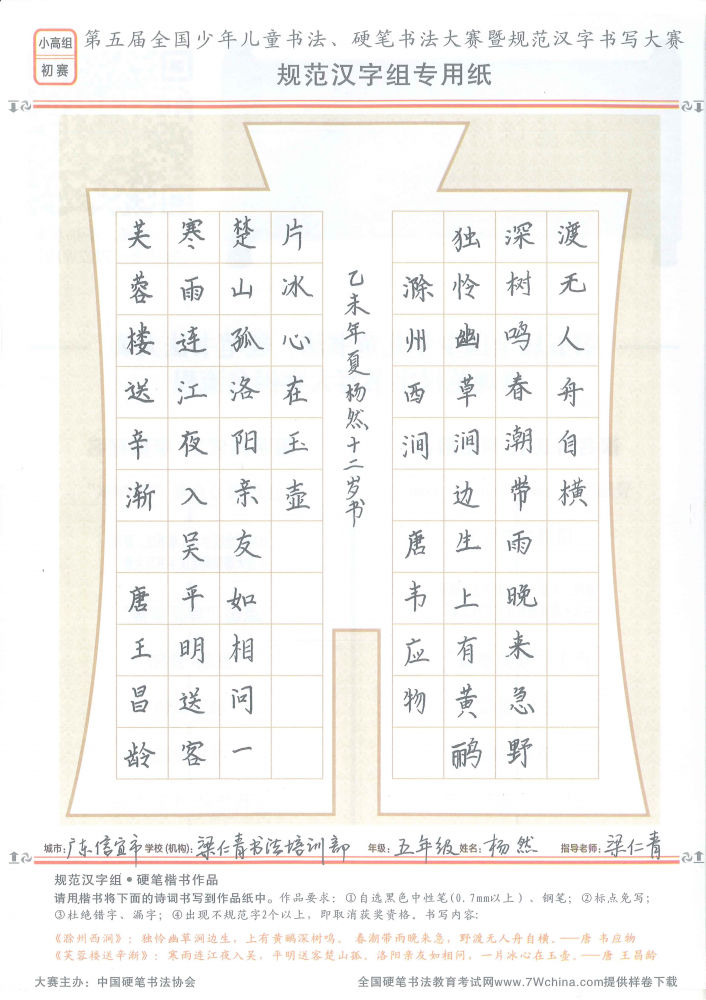 小高组
初赛
第五届全国少年儿童书法、硬笔书法大赛暨规范汉字书写大赛
规范汉字组专用纸
芙蓉楼送辛渐 唐王昌龄
寒雨连江夜入吴平明送客
楚山孤洛阳亲友如相问一
片冰心在玉壶
乙未年夏杨然十二岁书
滁州西涧 唐韦应物
独怜幽草涧边生上有黄鹂
深树鸣春潮带雨晚来急野
渡无人舟自横
城市:广东信宜市 学校(机构):梁仁青书法培训部 年级:五年级 姓名:杨然 指导老师:梁仁青
规范汉字组•硬笔楷书作品
请用楷书将下面的诗词书写到作品纸中。作品要求：①自选黑色中性笔(0.7mm以上）、钢笔；②标点免写；
③杜绝错字、漏字；④出现不规范字2个以上，即取消获奖资格。书写内容：
《滁州西涧》：独怜幽草涧边生，上有黄鹂深树鸣。 春潮带雨晚来急，野渡无人舟自横。——唐 韦应物
《芙蓉楼送辛渐》：寒雨连江夜入吴，平明送客楚山孤。洛阳亲友如相问，一片冰心在玉壶。——唐 王昌龄
大赛主办：中国硬笔书法协会
全国硬笔书法教育考试网www.7Wchina.com提供样卷下载